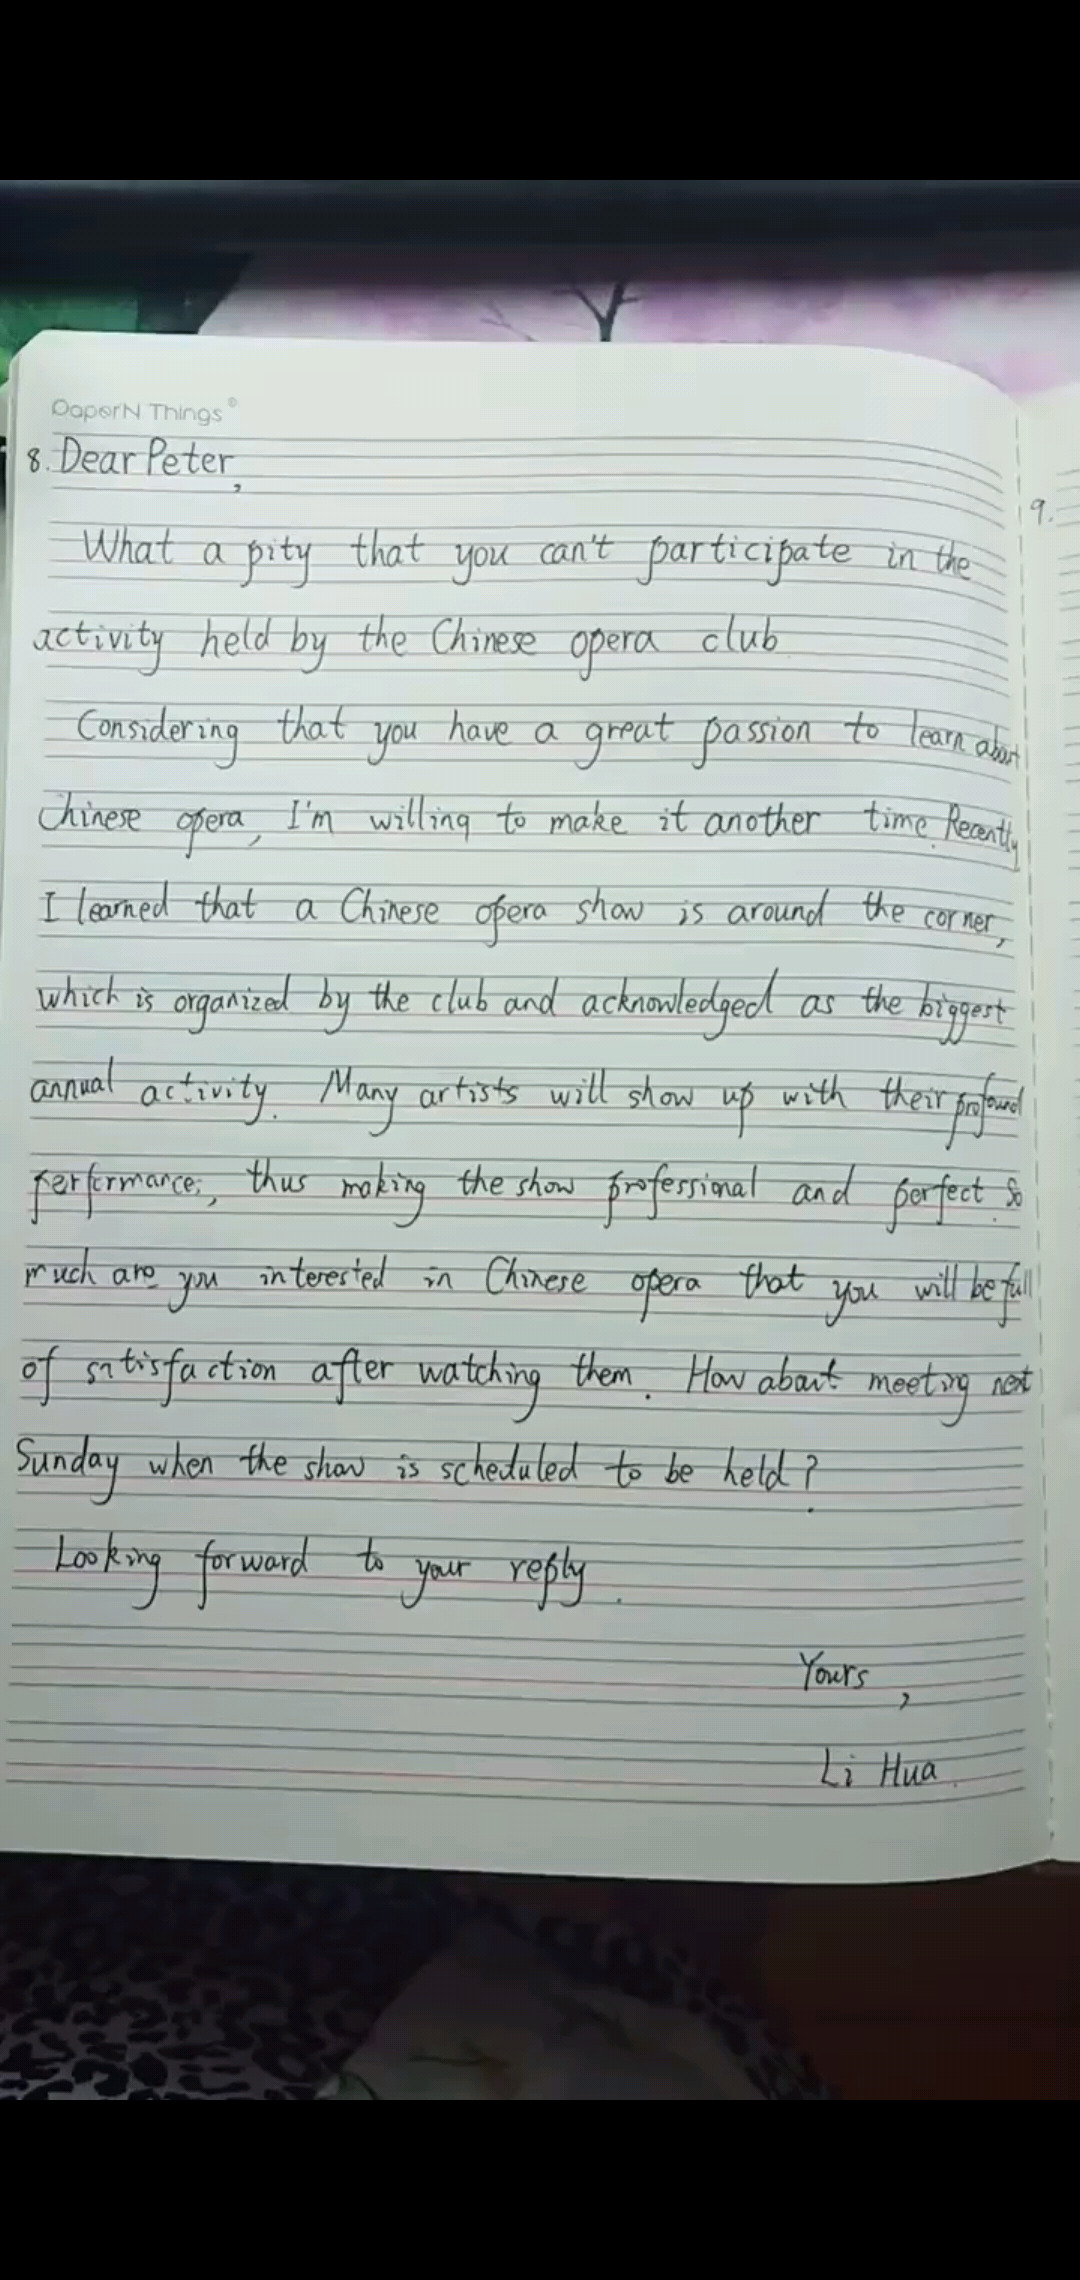 PaperN Things®
8. Dear Peter,
9.
What a pity that you can't participate in the
activity held by the Chinese opera club
Considering that you have a great passion to learn about
Chinese opera, I'm willing to make it another time. Recently
I learned that a Chinese opera show is around the corner,
which is organized by the club and acknowledged as the biggest
annual activity. Many artists will show up with their profound
performance, thus making the show professional and perfect. So
much are you interested in Chinese opera that you will be full
of satisfaction after watching them. How about meeting next
Sunday when the show is scheduled to be held?
Looking forward to your reply.
Yours,
Li Hua.